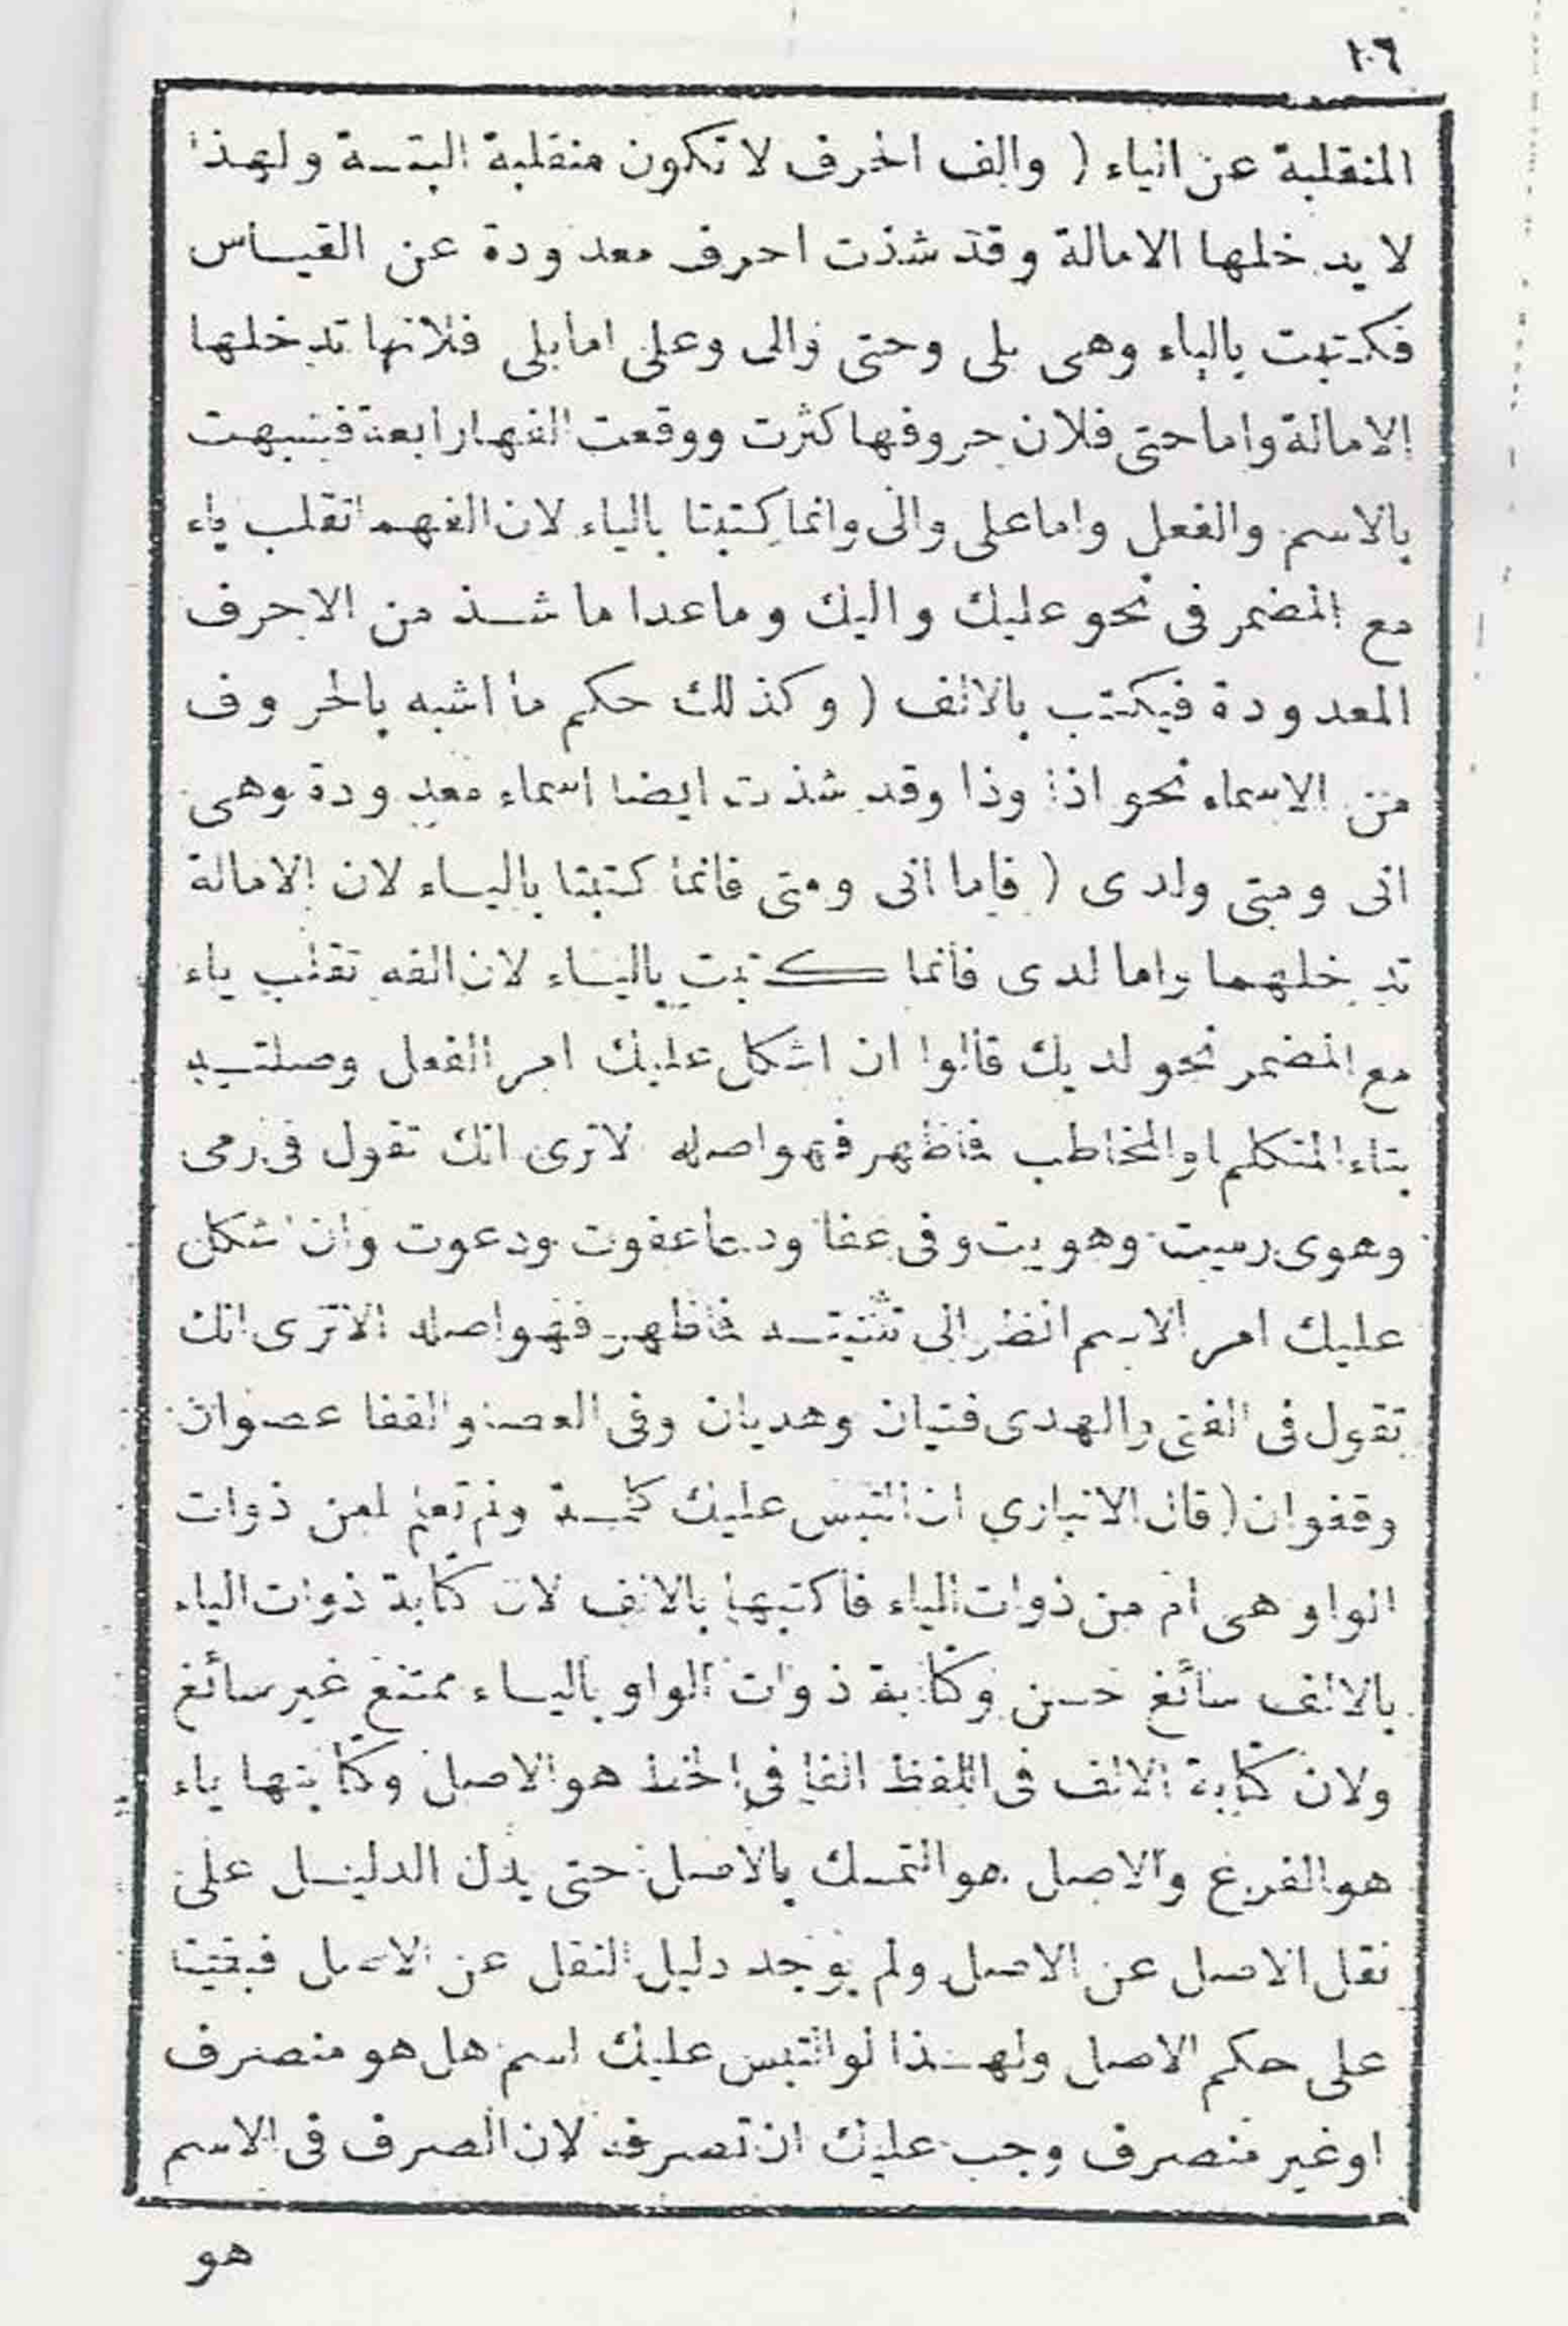 ١٠٦
المنقلبة عن الياء ( والف الحرف لا تكون منقلبة البتـة ولهذا
لا يدخلها الامالة وقد شذت احرف معدودة عن القيـاس
فكتبت بالياء وهى بلى وحتى والى وعلى اما بلى فلانها تدخلها
الامالة واما حتى فلان حروفها كثرت ووقعت الفها رابعة فشبهت
بالاسم والفعل واما على والى وانما كتبتا بالياء لان الفهما تقلب ياء
مع المضمر فى نحو عليك واليك وما عدا ما شـذ من الاحرف
المعدودة فيكتب بالالف ( وكذلك حكم ما اشبه بالحروف
من الاسماء نحو اذا وذا وقد شذت ايضا اسماء معدودة وهى
انى ومتى ولدى ( فاما انى ومتى فانما كتبتا باليـاء لان الامالة
تدخلهما واما لدى فانما كتبت باليـاء لان الفه تقلب ياء
مع المضمر نحو لديك قالوا ان اشكل عليك امر الفعل وصلتـه
بتاء المتكلم او المخاطب فاظهر فهو اصله الاترى انك تقول فى رمى
وهوى رميت وهويت وفى عفا ودعا عفوت ودعوت وان اشكل
عليك امر الاسم انظر الى تثنيتـه فاظهر فهو اصله الاترى انك
تقول فى الفتى والهدى فتيان وهديان وفى العصا والقفا عصوان
وقفوان ( قال الانبارى ان التبس عليك كلمـة ولم تعلم امن ذوات
الواو هى ام من ذوات الياء فاكتبها بالالف لان كتابة ذوات الياء
بالالف سائغ حسن وكتابة ذوات الواو باليـاء ممتنع غير سائغ
ولان كتابة الالف فى اللفظ الفا فى الخط هو الاصل وكتابتها ياء
هو الفرع والاصل هو التمسك بالاصل حتى يدل الدليـل على
نقل الاصل عن الاصل ولم يوجد دليل النقل عن الاصل فبقينا
على حكم الاصل ولهـذا لو التبس عليك اسم هل هو منصرف
او غير منصرف وجب عليك ان تصرفه لان الصرف فى الاسم
هو